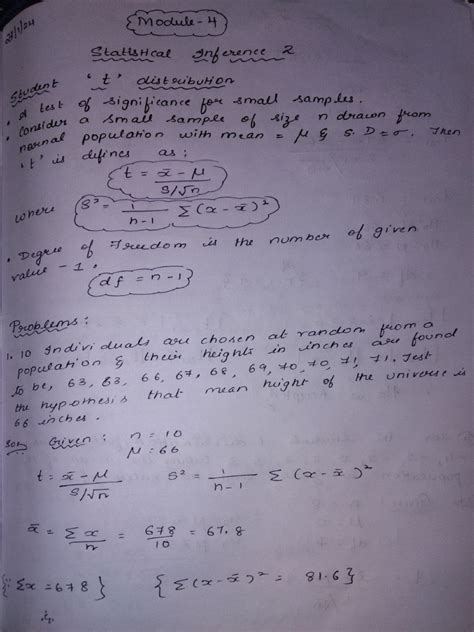 27/1/24
Module-4
Statistical Inference 2
Student 't' distribution
• A test of significance for small samples.
• Consider a small sample of size n drawn from
normal population with mean = μ & S.D = σ. Then
't' is defines as:
t = x̄ - μ / S/√n
where S² = 1/n-1 Σ (x - x̄)²
• Degree of Freedom is the number of given
value - 1.
df = n-1
Problems:
1. 10 Individuals are chosen at random from a
population & their heights in inches are found
to be, 63, 63, 66, 67, 68, 69, 70, 70, 71, 71. Test
the hypothesis that mean height of the universe is
66 inches.
Soln Given: n = 10
μ = 66
t = x̄ - μ / S/√n S² = 1/n-1 Σ (x - x̄)²
x̄ = Σx/n = 678/10 = 67.8
{∵ Σx = 678} {Σ(x - x̄)² = 81.6}